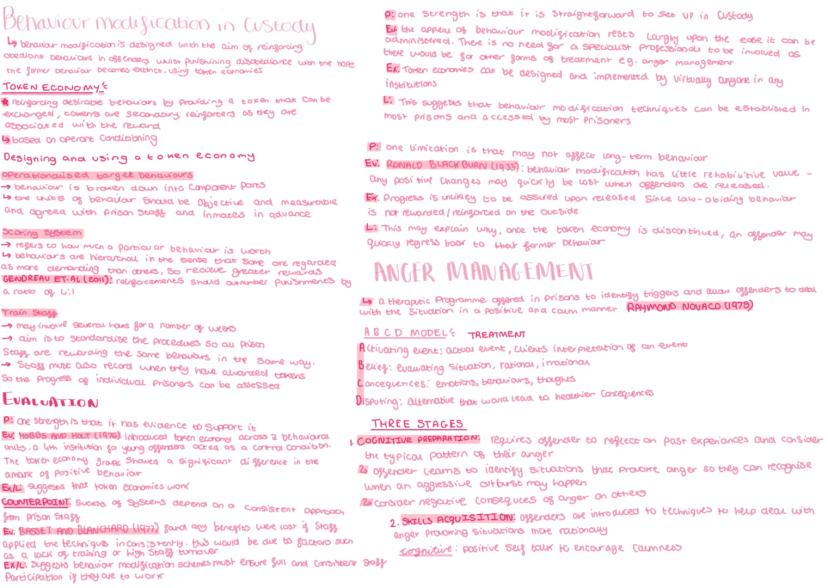 Behaviour modification in Custody
↳ behaviour modification is designed with the aim of reinforcing
obedient behaviours in offenders whilst punishing disobedience with the hope
the former behaviour becomes extinct, using token economies
TOKEN ECONOMY:
* reinforcing desirable behaviours by providing a token that can be
exchanged, tokens are secondary reinforcers as they are
associated with the reward
↳ based on operant conditioning
Designing and using a token economy
operationalised target behaviours
→ behaviour is broken down into component parts
↳ the units of behaviour should be Objective and measurable
and agreed with prison staff and inmates in advance
Scoring System
→ refers to how much a particular behaviour is worth
↳ behaviours are hierarchical in the sense that some are regarded
as more demanding than others, so recieve greater rewards
GENDREAU ET-AL (2011): reinforcements should outnumber punishments by
a ratio of 4:1
Train Staff
→ may involve several hours for a number of weeks
→ aim is to standardise the procedures so all prison
Staff are rewarding the same behaviours in the same way.
→ Staff must also record when they have awarded tokens
So the progress of individual prisoners can be assessed
EVALUATION
P: One strength is that it has evidence to support it
Ev: HOBBS AND HOLT (1976) introduced token economy across 3 behavioural
units. a 4th institution for young offenders acted as a control condition.
The token economy groups showed a significant difference in the
amount of positive behaviour
Ex/L: Suggests that token economies work
COUNTERPOINT: Success of systems depend on a consistent approach
from prison staff
Ev: BASSET AND BLANCHARD (1977) found any benefits were lost if staff
applied the techniques inconsistently. this would be due to factors such
as a lack of training or high staff turnover
EX/L: Suggests behaviour modification schemes must ensure full and consistent staff
Participation if they are to work
P: one strength is that it is straightforward to set up in custody
Ev: the appeal of behaviour modification rests largly upon the ease it can be
administered. There is no need for a specialist professionals to be involved as
there would be for other forms of treatment e.g. anger management
Ex: Token economies can be designed and implemented by virtually anyone in any
institutions
L: This suggests that behaviour modification techniques can be established in
most prisons and accessed by most prisoners
P: one limitation is that may not affect long-term behaviour
Ev: RONALD BLACKBURN (1993): behaviour modification has little rehabilitive value -
any positive changes may quickly be lost when offenders are released.
Ex: Progress is unlikely to be assured upon released since law-abiding behaviour
is not rewarded/reinforced on the outside
L: This may explain why, once the token economy is discontinued, an offender may
quickly regress back to their former behaviour
ANGER MANAGEMENT
↳ a theraputic programme offered in prisons to identify triggers and allow offenders to deal
with the situation in a positive and calm manner RAYMOND NOVACO (1975)
ABCD MODEL: TREATMENT
Activating event: actual event, clients interpretation of an event
Belief: evaluating situation, rational, irrational
Concequences: emotions, behaviours, thoughts
Disputing: alternative that would lead to healthier concequences
THREE STAGES
1. COGNITIVE PREPARATION: requires offender to reflect on past experiences and consider
the typical pattern of their anger
↳ offender learns to identify situations that provoke anger so they can recognise
when an aggressive outburst may happen
↳ consider negative consequeces of anger on others
2. SKILLS ACQUISITION: offenders are introduced to techniques to help deal with
anger provoking situations more rationally
cognitive: positive self talk to encourage calmness